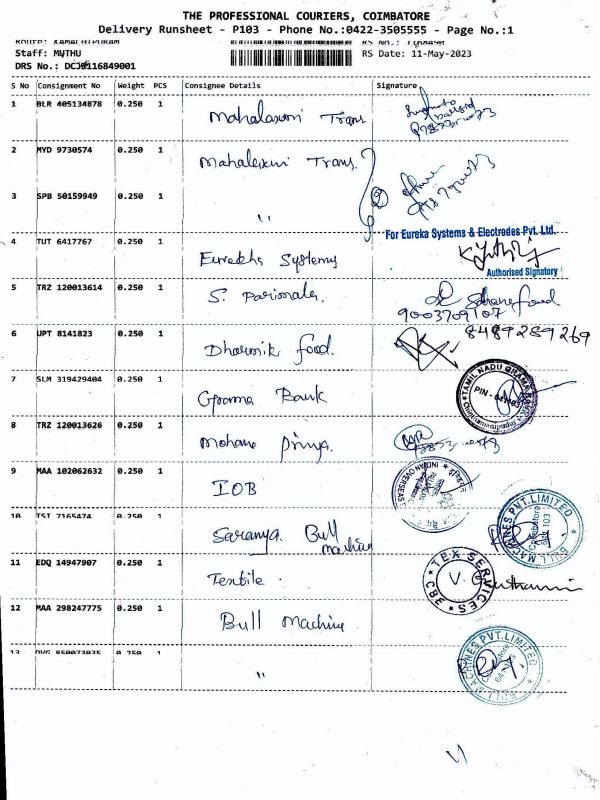 THE PROFESSIONAL COURIERS, COIMBATORE
Delivery Runsheet - P103 - Phone No.:0422-3505555 - Page No.:1
Staff: MUTHU
RS Date: 11-May-2023
DRS No.: DCJ0116849001
S No Consignment No Weight PCS Consignee Details Signature
1 BLR 405134878 0.250 1 Mahalaxmi Trans
2 MYD 9730574 0.250 1 Mahalaxmi Trans.
3 SPB 50159949 0.250 1 "
For Eureka Systems & Electrodes Pvt. Ltd.
4 TUT 6417767 0.250 1 Eurekha Systems
Authorised Signatory
5 TRZ 120013614 0.250 1 S. Parimala.
9003709107
6 UPT 8141823 0.250 1 Dharmik food. 8489289269
7 SLM 319429404 0.250 1 Grama Bank
TAMIL NADU GRAMA BANK
8 TRZ 120013626 0.250 1 Mohana Priya.
9 MAA 102062632 0.250 1 IOB
INDIAN OVERSEAS
10 TSI 7165474 0.250 1 Saranya. Bull machine
BULL MACHINES PVT.LIMITED
11 EDQ 14947907 0.250 1 Textile.
TEX SERVICES CBE
12 MAA 298247775 0.250 1 Bull Machine
13 DVG 850073035 0.250 1 "
BULL MACHINES PVT.LIMITED